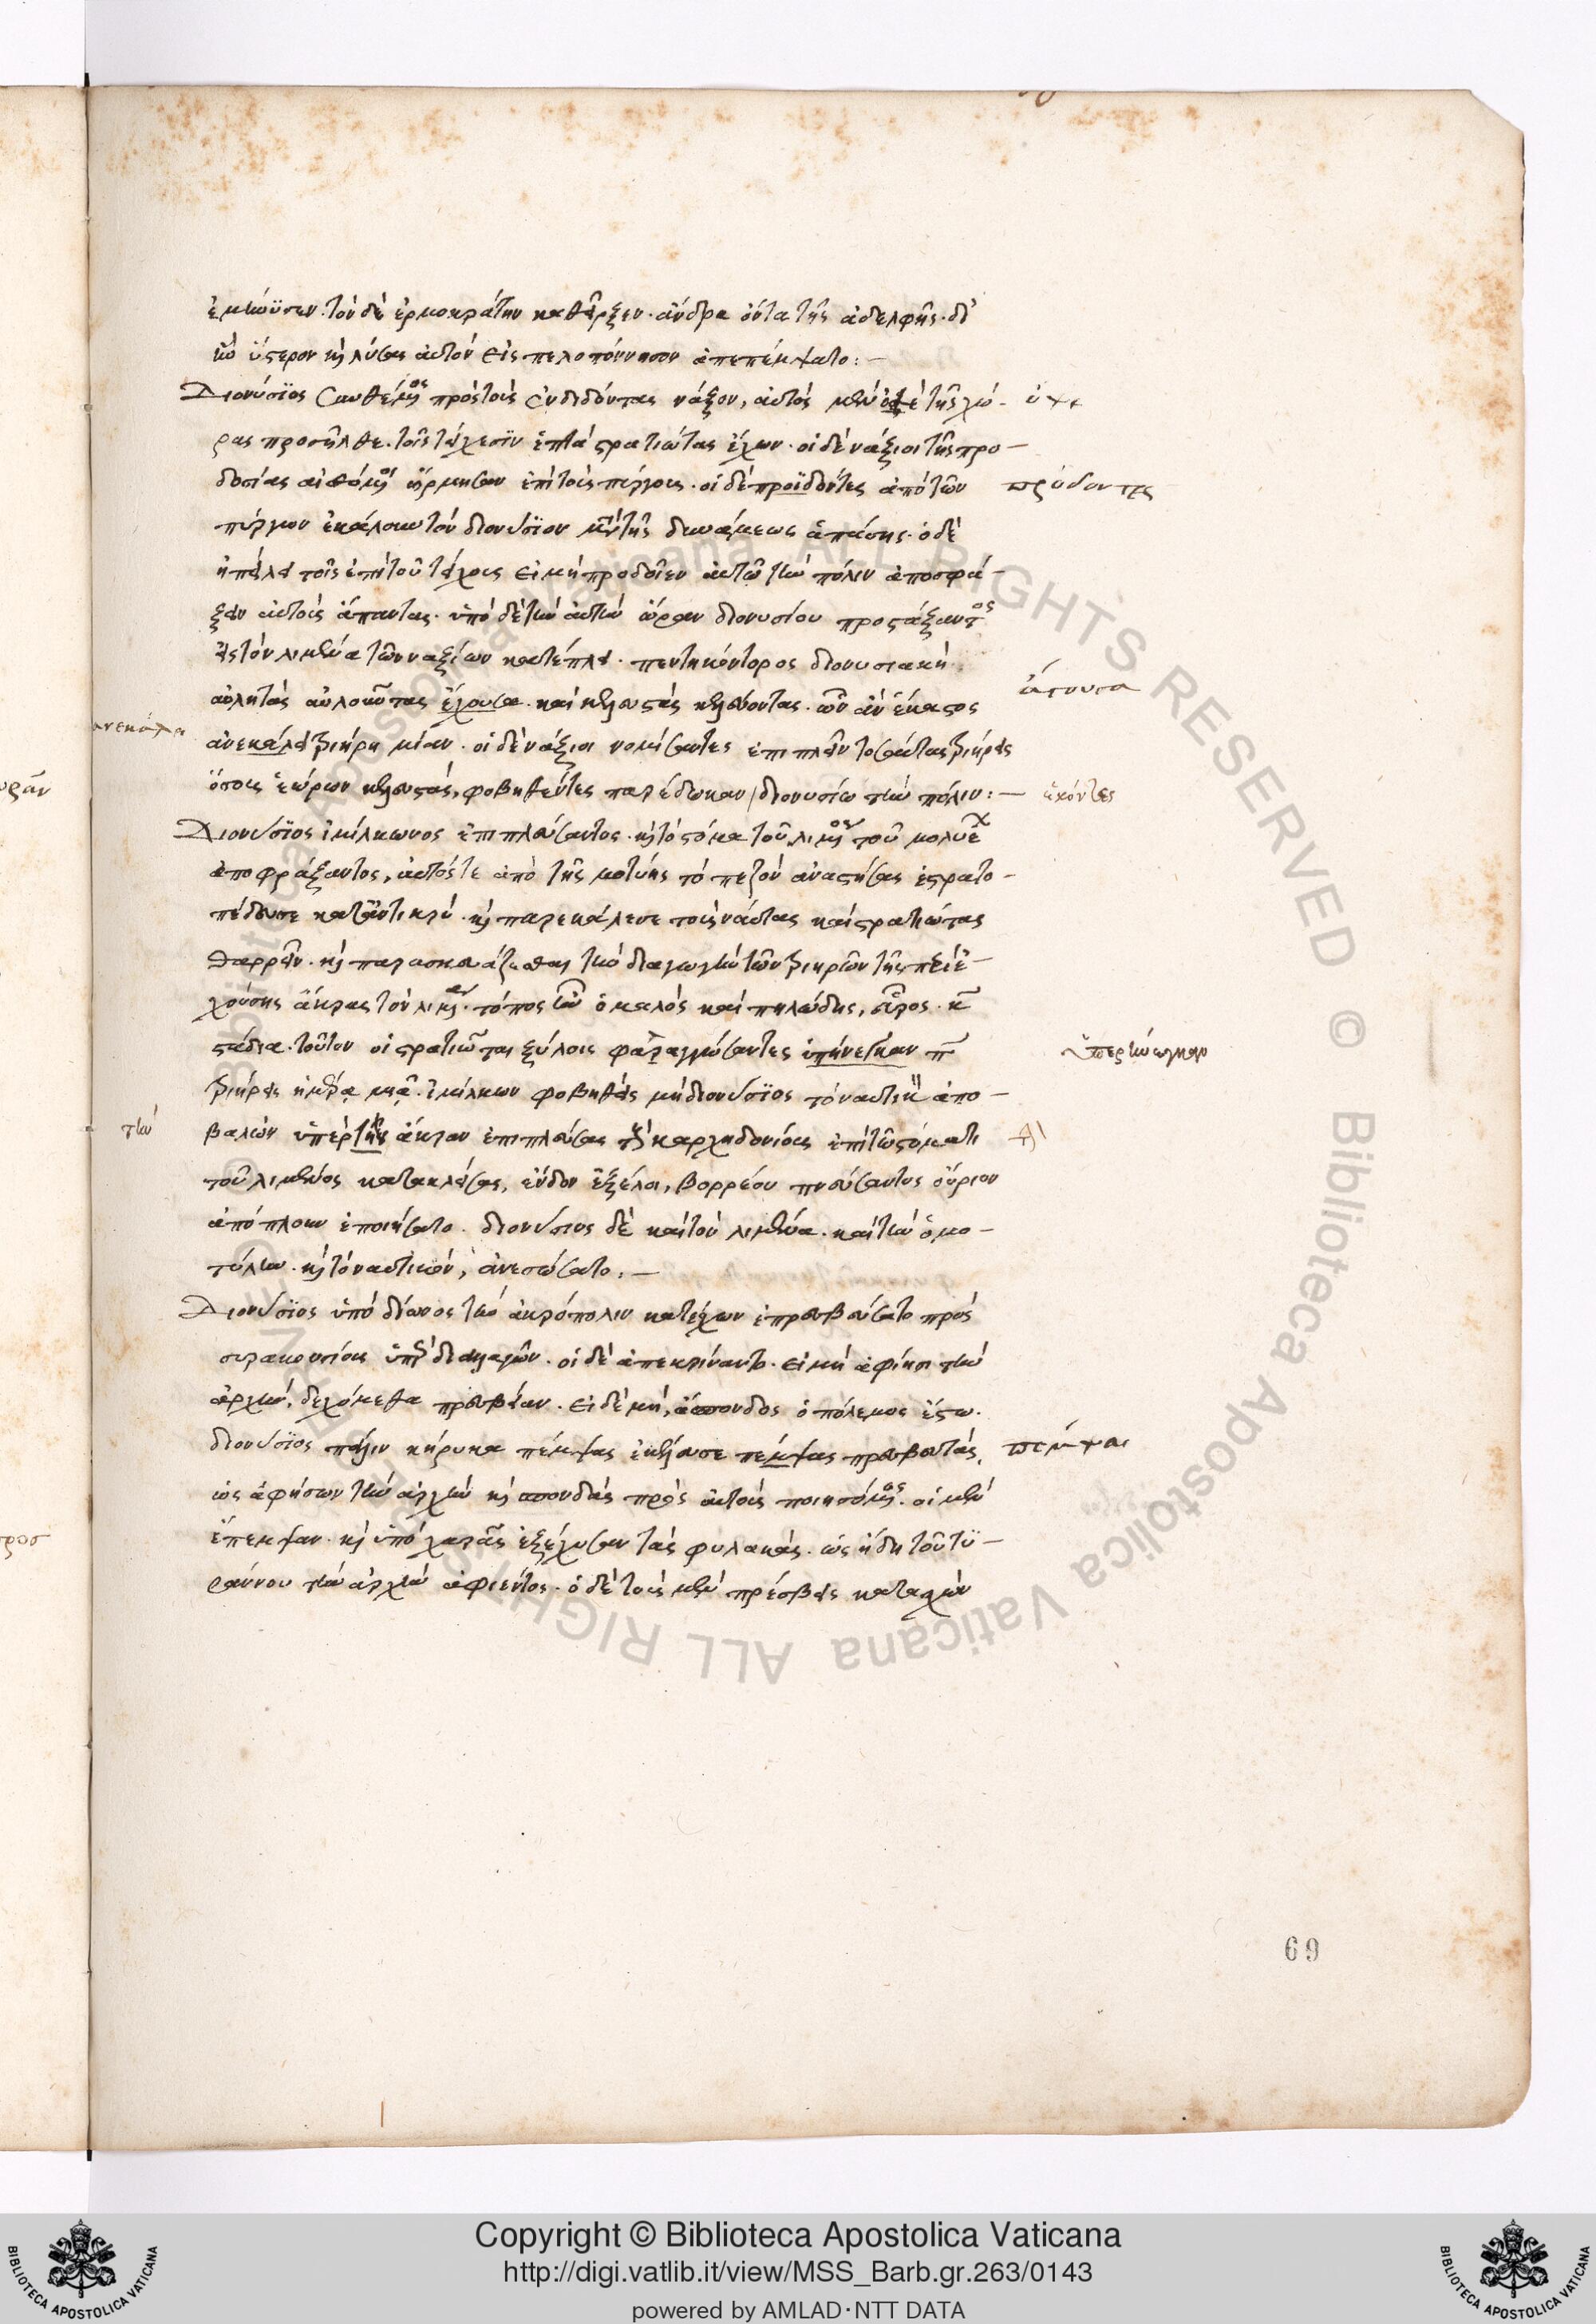 ἐμήνυσεν. τὸν δὲ ἑρμοκράτην καθεῖρξεν. ἄνδρα ὄντα τῆς ἀδελφῆς. δι'
ἣν ὕστερον καὶ λύσας αὐτὸν εἰς πελοπόννησον ἀπεπέμψατο:—
Διονύσϊος συνθέμενος πρὸς τοὺς ἐνδιδόντας νάξον, αὐτὸς μὲν ὀψὲ τῆς ὥ-
ρας προσῆλθε. τοῖς τείχεσϊν ἑπτὰ στρατιώτας ἔχων. οἱ δὲ νάξιοι τῆς προ-
δοσίας αἰσθόμενοι ὥρμησαν ἐπὶ τοὺς πύργους. οἱ δὲ προϊδόντες ἀπὸ τῶν
πύργων ἐκάλουν τὸν διονύσϊον μετὰ τῆς δυνάμεως ἁπάσης. ὁ δὲ
ἠπείλει τοῖς ἐπὶ τοῦ τείχους εἰ μὴ προδοῖεν αὐτῶ τὴν πόλιν ἀποσφά-
ξειν αὐτοὺς ἅπαντας. ὑπὸ δὲ τὴν αὐτὴν ὥραν διονυσίου προστάξαντος
εἰς τὸν λιμένα τῶν ναξίων κατέπλει. πεντηκόντορος διονυσιακὴ
αὐλητὰς αὐλοῦντας ἔχουσα. καὶ κελευστὰς κελεύοντας. ὧν ἂν ἕκαστος
ἀνεκάλει τριήρη μίαν. οἱ δὲ νάξιοι νομίσαντες ἐπιπλεῖν τοσαύτας τριήρεις
ὅσους ἑώρων κελευστὰς, φοβηθέντες παρέδωκαν διονυσίω τὴν πόλιν:—
Διονύσϊος ἰμίλκωνος ἐπιπλεύσαντος. καὶ τὸ στόμα τοῦ λιμένος τοῦ
ἀποφράξαντος, αὐτός τε ἀπὸ τῆς μοτύης τὸ πεζὸν ἀναστήσας ἐστρατο-
πέδευσε καταντικρύ. καὶ παρεκάλεσε τοὺς ναύτας καὶ στρατιώτας
θαρρεῖν. καὶ παρασκευάζεσθαι τὴν διαγωγὴν τῶν τριηρῶν τῆς περιε-
χούσης ἄκρας τὸν λιμένα. τόπος ἦν ὁμαλὸς καὶ πηλώδης, εὖρος. κ
στάδια. τοῦτον οἱ στρατιῶται ξύλοις φαραγγώσαντες ὑπήνεγκαν π
τριήρεις ἡμέρα μιᾶ. ἰμίλκων φοβηθεὶς μὴ διονύσϊος τὸ ναυτικὸν ἀπο-
βαλὼν ὑπὲρ τὴν ἄκραν ἐπιπλεύσας τοὺς καρχηδονίους ἐπὶ τῶ στόματι
τοῦ λιμένος κατακλείσας, ἔνδον ἐξέλοι, βορρέου πνεύσαντος οὔριον
ἀπόπλουν ἐποιήσατο. διονύσιος δὲ καὶ τὸν λιμένα. καὶ τὴν ὁμο-
τύλην. καὶ τὸ ναυτικὸν, ἀνεσώσατο.—
Διονύσϊος ὑπὸ δίωνος τὴν ἀκρόπολιν κατέχων ἐπρεσβεύσατο πρὸς
συρακουσίους ὑπὲρ διαλλαγῶν. οἱ δὲ ἀπεκρίναντο. εἰ μὴ ἀφίησι τὴν
ἀρχὴν, δεχόμεθα πρεσβείαν. εἰ δὲ μή, ἄσπονδος ὁ πόλεμος ἔστω.
διονύσϊος πάλιν κήρυκα πέμψας ἐκέλευσε πέμψας πρεσβευτάς,
ὡς ἀφήσων τὴν ἀρχὴν καὶ σπονδὰς πρὸς αὐτοὺς ποιησόμενος. οἱ μὲν
ἔπεμψαν. καὶ ὑπὸ χαρᾶς ἐξέλυσαν τὰς φυλακάς. ὡς ἤδη τοῦ τυ-
ράννου τὴν ἀρχὴν ἀφιέντος. ὁ δὲ τοὺς μὲν πρέσβεις κατασχὼν
ὀψὲ
προδόντες
ἄγουσα
ἀνεκάλει
ὑπερήνεγκαν
τὴν
πέμψαι
69
Copyright © Biblioteca Apostolica Vaticana
http://digi.vatlib.it/view/MSS_Barb.gr.263/0143
powered by AMLAD·NTT DATA